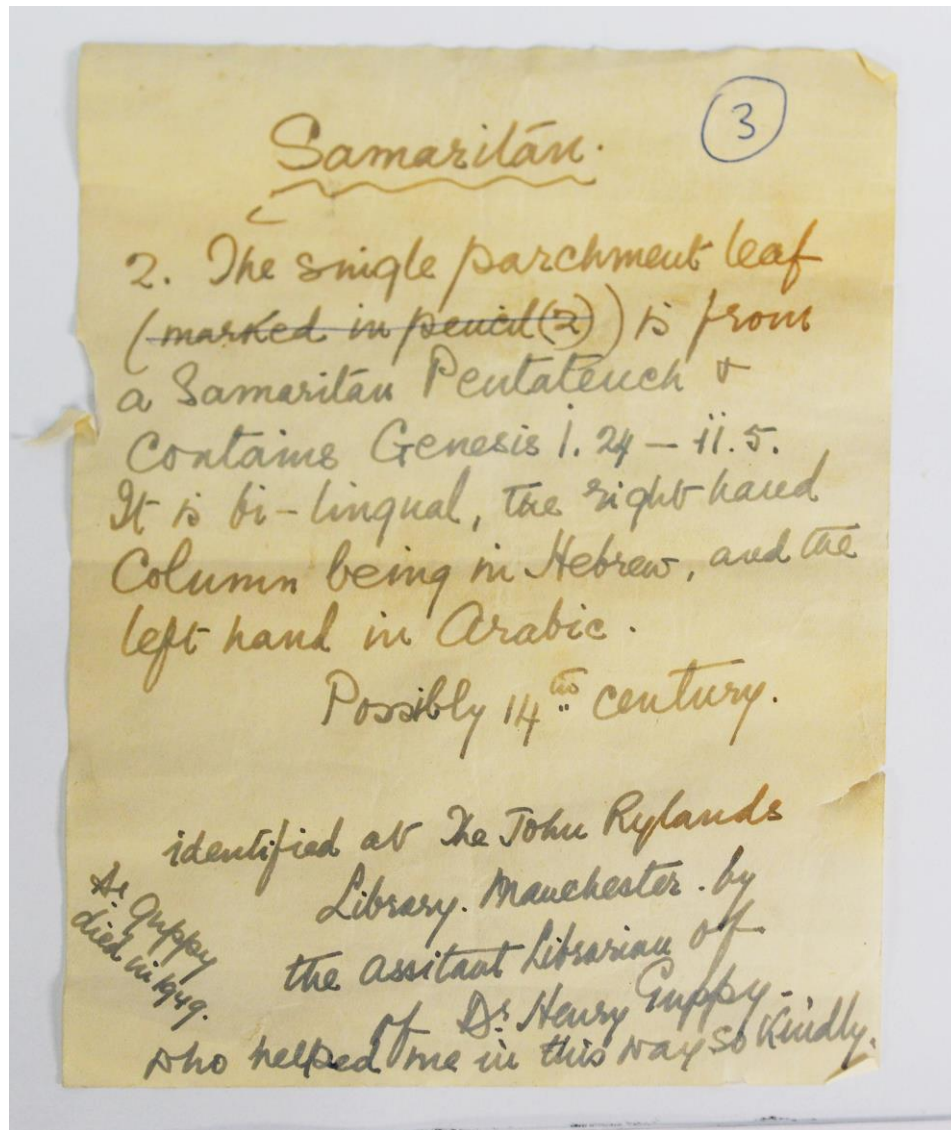 3
Samaritan.
2. The single parchment leaf
(marked in pencil (2)) is from
a Samaritan Pentateuch &
Contains Genesis i. 24 – ii. 5.
It is bi-lingual, the right hand
Column being in Hebrew, and the
left hand in Arabic.
Possibly 14th century.
identified at The John Rylands
Library. Manchester. by
the assitant Librarian of
of Dr. Henry Guppy.
who helped me in this way so kindly.
Dr Guppy
died in 1949.